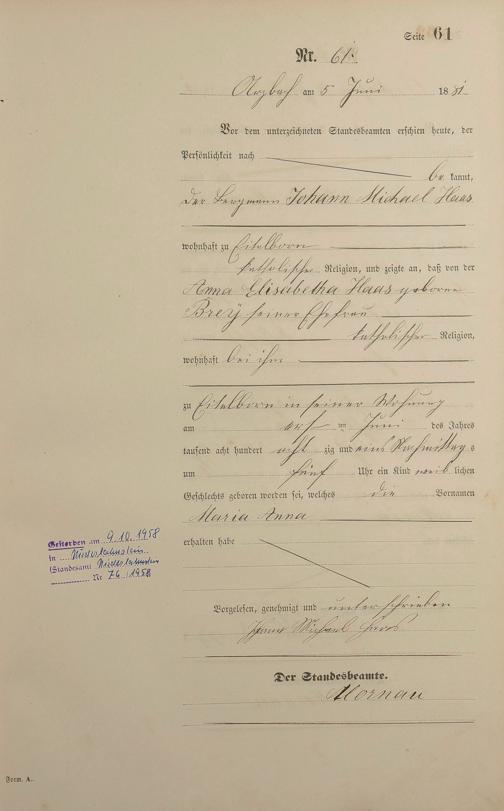 Seite 61
Nr. 61.
Arzbach am 5 Juni 1881
Vor dem unterzeichneten Standesbeamten erschien heute, der
Persönlichkeit nach
be kannt,
der Bergmann Johann Michael Haas
wohnhaft zu Eitelborn
katholischer Religion, und zeigte an, daß von der
Anna Elisabetha Haas geborne
Brey seiner Ehefrau
katholischer Religion,
wohnhaft bei ihm
zu Eitelborn in seiner Wohnung
am Juni des Jahres
tausend acht hundert acht zig und eins Nachmittags
um fünf Uhr ein Kind weib lichen
Geschlechts geboren worden sei, welches die Vornamen
Maria Anna
erhalten habe
Gestorben am 9.10.1958
in Niederlahnstein
(Standesamt Niederlahnstein
Nr 76/1958
Vorgelesen, genehmigt und unterschrieben
Johann Michael Haas
Der Standesbeamte.
Mornau
Form. A.